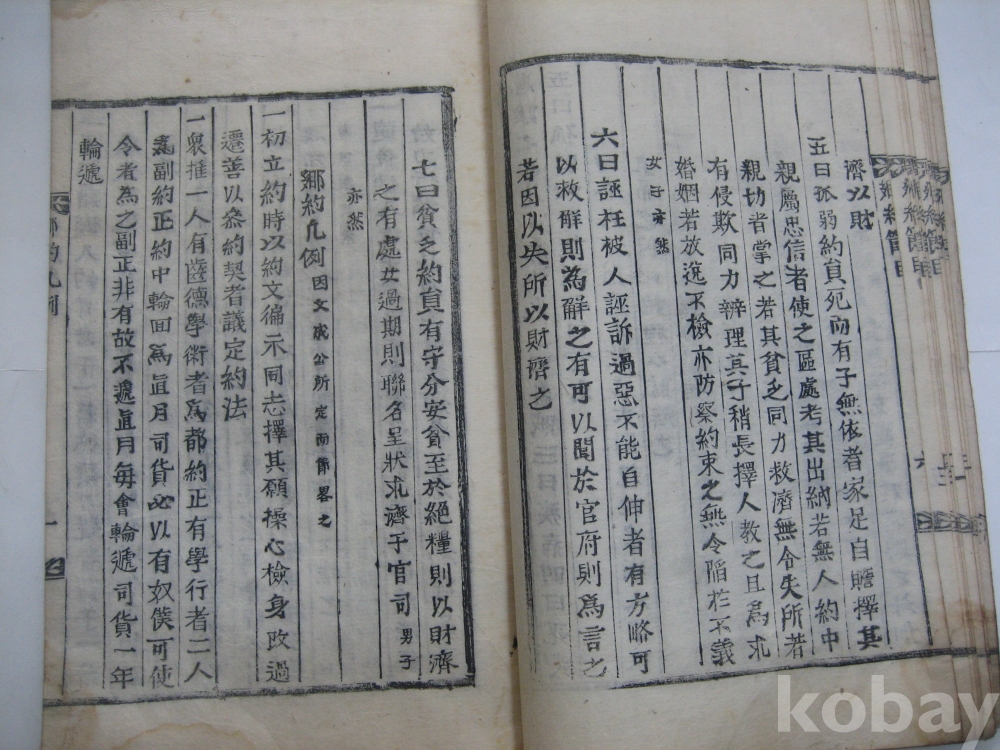 濟以財
五曰孤弱約員死而有子無依者家足自贍擇其
親屬忠信者使之區處考其出納若無人約中
親切者掌之若其貧乏同力救濟無令失所若
有侵欺同力辨理其子稍長擇人教之且爲求
婚姻若放逸不檢亦防察約束之無令陷於不義
女子亦然
六曰誣枉被人誣訴過惡不能自伸者有方略可
以救解則為解之有可以聞於官府則爲言之
若因以失所以財濟之
七曰貧乏約員有守分安貧至於絶糧則以財濟
之有處女過期則聯名呈狀求濟于官司 男子
亦然
鄉約凡例 因文成公所定而節畧之
一初立約時以約文徧示同志擇其願操心檢身改過
遷善以參約契者議定約法
一衆推一人有齒德學術者爲都約正有學行者二人
爲副約正約中輪回爲直月司貨必以有奴僕可使
令者為之副正非有故不遞直月每會輪遞司貨一年
輪遞
鄉約凡例
一
kobay